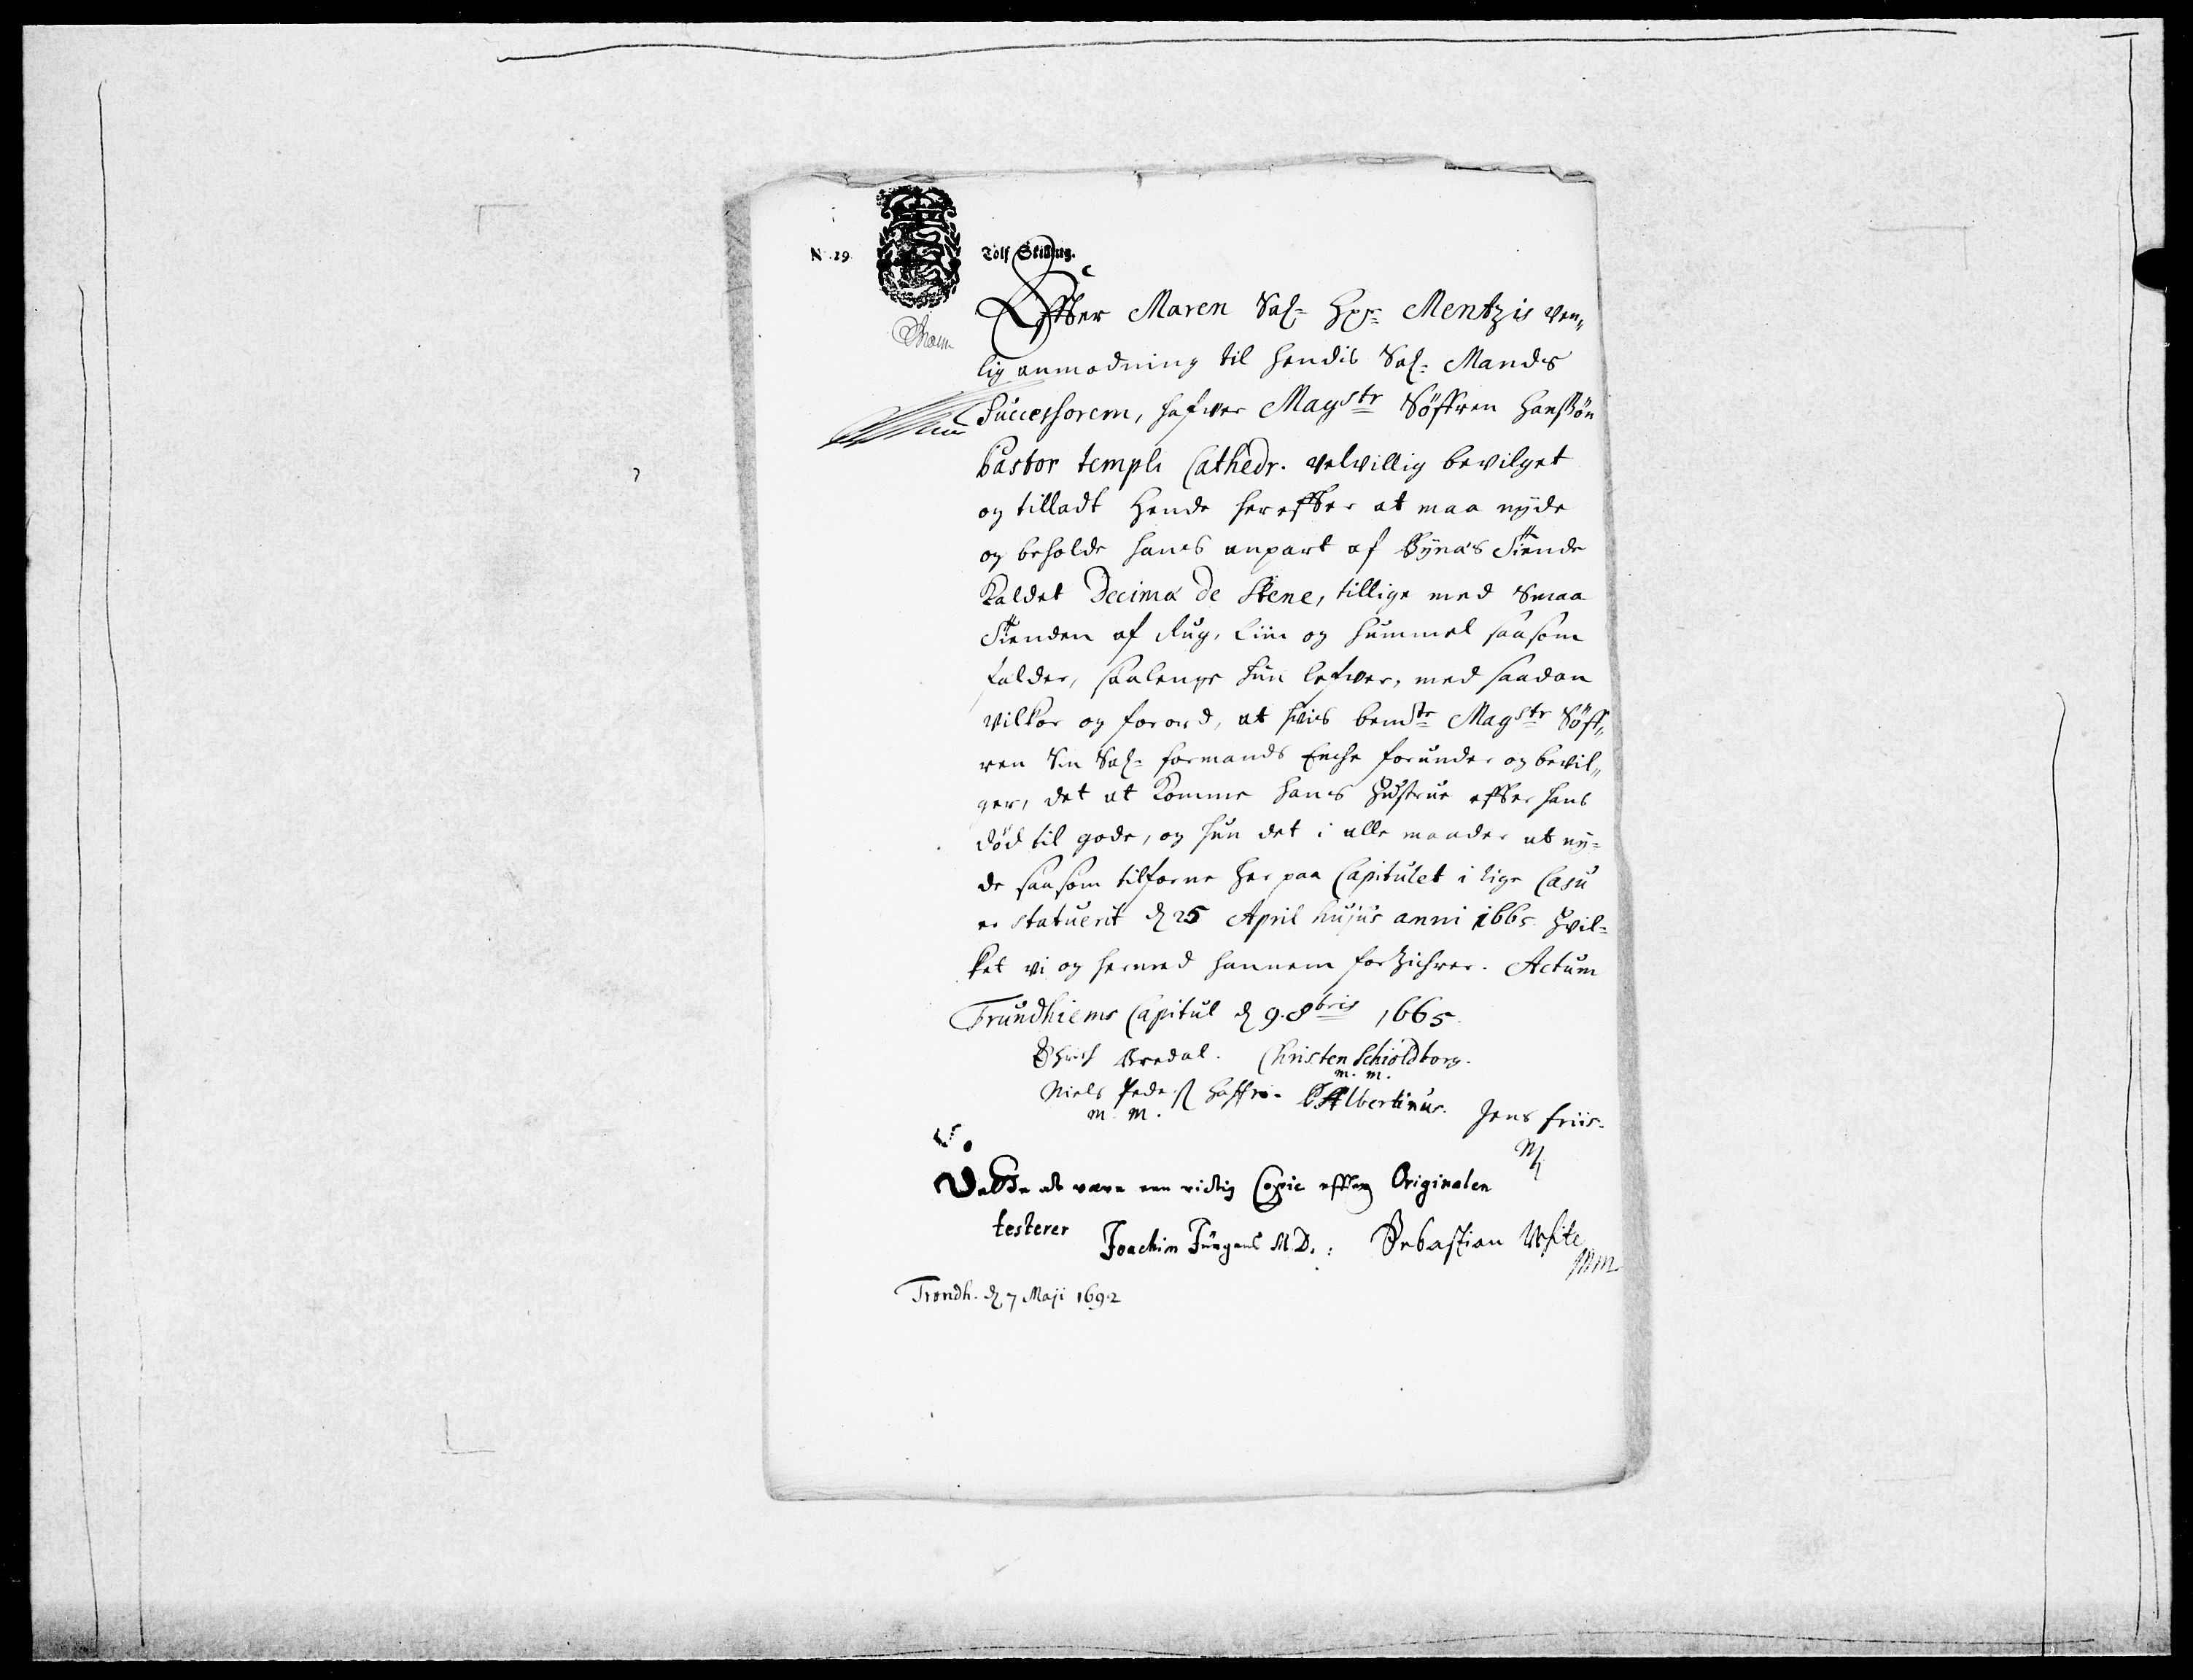 N. 29. Tolf Skilling.
Effter Maren Sal= Hr= Mentzis ven„
lig anmodning til hendis Sal= Mands
Successorem, hafver Magstr Söffren Hansßön
Pastor templi Cathedr. velvillig bevilget
og tilladt Hende hereffter at maa nyde
og beholde hans anpart af Bynæs Tiende
kaldet Decima de Skene, tillige med Smaa
Tienden af Rug, Liin og hummel saasom
falder, saalenge hun lefver, med saadan
vilkor og forord, at hvis bemte Magstr Söff„
ren Sin Sal= formands Encke forunder og bevil„
ger, det at komme hans Hustrue effter hans
död til gode, og hun det i alle maader at ny=
de saasom tilforne her paa Capitulet i lige Casu
er statuerit d 25 April hujus anni 1665 Hvil=
ket vi og hermed hannem forsichrer. Actum
Trundhiems Capitul d 9. 8bris 1665.
Bredal. Christen Schiöldborg.
m. m.
Niels Peders. Albertinus. Jens Friis.
m. m.
Dette at være een rictig Copie effter Originalen
testerer Joachim Jürgens M.D.: Sebastian White
mm
Trondh. d 7 Maji 1692